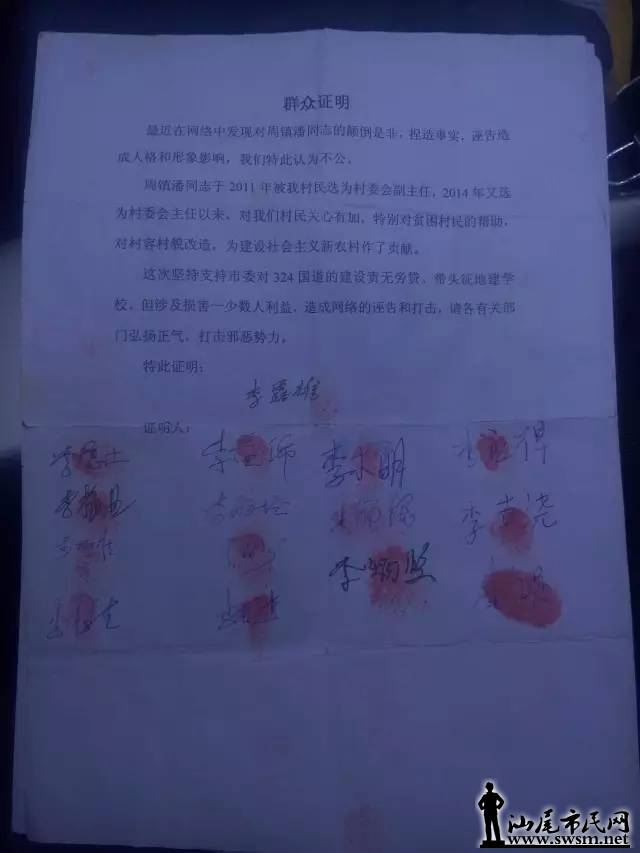 群众证明
最近在网络中发现对周镇潘同志的颠倒是非，捏造事实，诬告造
成人格和形象影响，我们特此认为不公。
周镇潘同志于2011年被我村民选为村委会副主任，2014年又选
为村委会主任以来，对我们村民关心有加，特别对贫困村民的帮助，
对村容村貌改造，为建设社会主义新农村作了贡献。
这次坚持支持市委对324国道的建设责无旁贷，带头征地建学
校，但涉及损害一少数人利益，造成网络的诬告和打击，请各有关部
门弘扬正气，打击邪恶势力。
特此证明：
证明人：
李木明
李炳坚
汕尾市民网
www.swsm.net